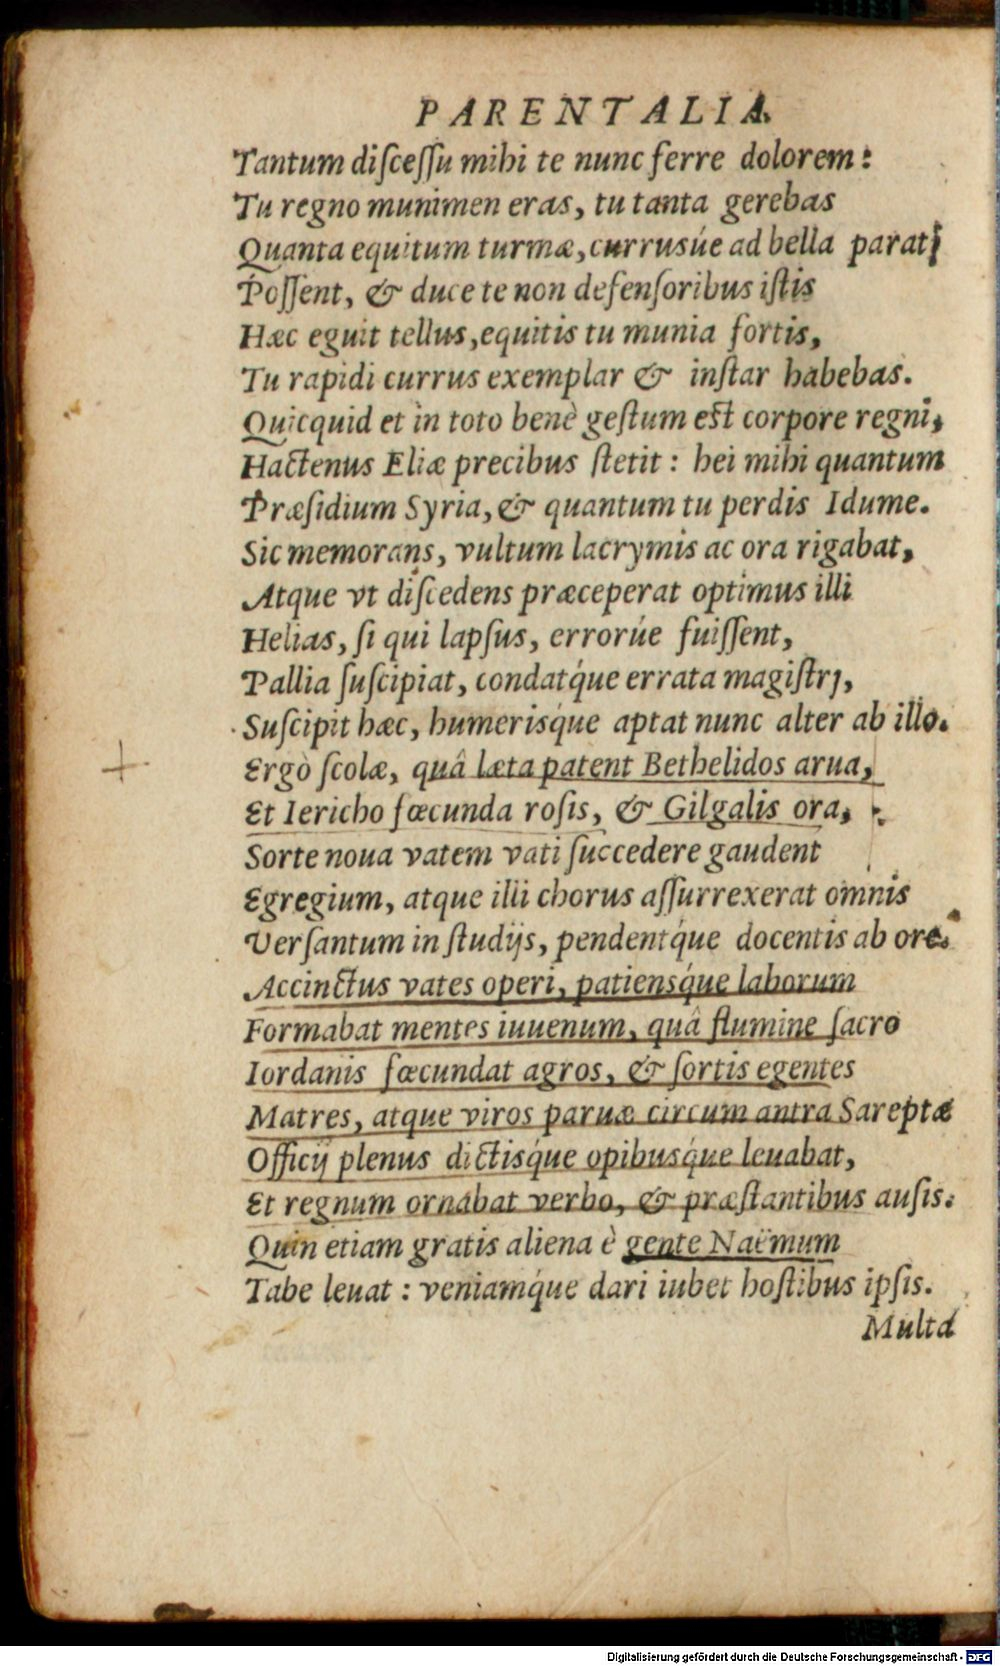 PARENTALIA.
Tantum diſceſſu mihi te nunc ferre dolorem:
Tu regno munimen eras, tu tanta gerebas
Quanta equitum turmæ, currusúe ad bella parati
Poſſent, & duce te non defenſoribus iſtis
Hæc eguit tellus, equitis tu munia fortis,
Tu rapidi currus exemplar & inſtar habebas.
Quicquid et in toto benè geſtum est corpore regni,
Hactenus Eliæ precibus ſtetit: hei mihi quantum
Præſidium Syria, & quantum tu perdis Idume.
Sic memorans, vultum lacrymis ac ora rigabat,
Atque vt diſcedens præceperat optimus illi
Helias, ſi qui lapſus, errorúe fuiſſent,
Pallia ſuſcipiat, condatq́ue errata magiſtrj,
Suſcipit hæc, humerisq́ue aptat nunc alter ab illo.
Ergò ſcolæ, quâ læta patent Bethelidos arua,
Et Iericho fœcunda roſis, & Gilgalis ora,
Sorte noua vatem vati ſuccedere gaudent
Egregium, atque illi chorus aſſurrexerat omnis
Verſantum in ſtudijs, pendentq́ue docentis ab ore.
Accinctus vates operi, patiensq́ue laborum
Formabat mentes iuuenum, quâ flumine ſacro
Iordanis fœcundat agros, & ſortis egentes
Matres, atque viros paruæ circum antra Sareptæ
Officij plenus dictisq́ue opibusq́ue leuabat,
Et regnum ornabat verbo, & præſtantibus auſis.
Quin etiam gratis aliena è gente Naëmum
Tabe leuat: veniamq́ue dari iubet hoſtibus ipſis.
Multa
Digitalisierung gefördert durch die Deutsche Forschungsgemeinschaft - DFG